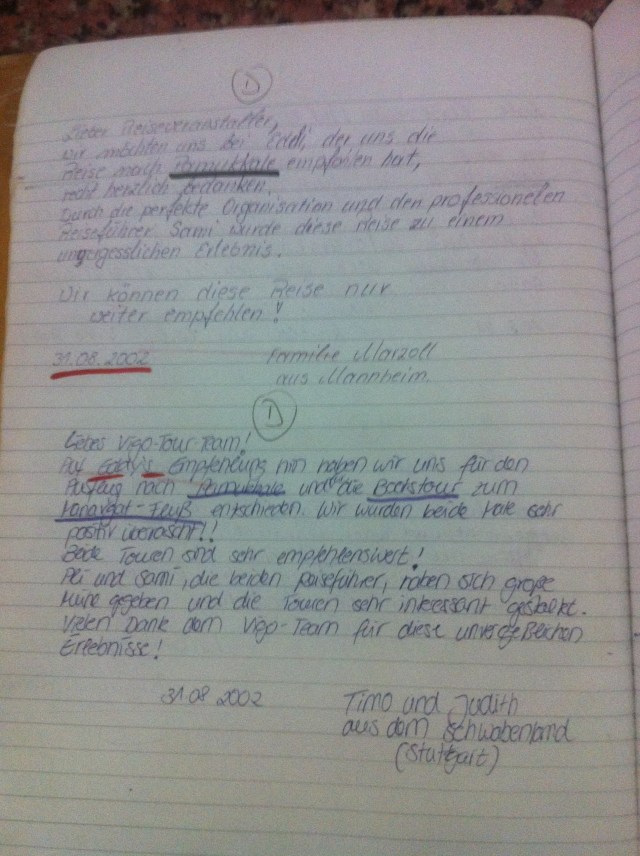 D
Lieber Reiseveranstalter,
wir möchten uns bei Eddi, der uns die
Reise nach Pamukkale empfohlen hat,
recht herzlich bedanken.
Durch die perfekte Organisation und den professionellen
Reiseführer Sami wurde diese Reise zu einem
unvergesslichen Erlebnis.
Wir können diese Reise nur
weiter empfehlen!
31.08.2002 Familie Marzoll
aus Mannheim.
D
Liebes Vigo-Tour-Team!
Auf Eddy's Empfehlung hin haben wir uns für den
Ausflug nach Pamukkale und die Bootstour zum
Manavgat-Fluß entschieden. Wir wurden beide Male sehr
positiv überrascht!!
Beide Touren sind sehr empfehlenswert!
Ali und Sami, die beiden Reiseführer, haben sich große
Mühe gegeben und die Touren sehr interessant gestaltet.
Vielen Dank dem Vigo-Team für diese unvergeßlichen
Erlebnisse!
31.08 2002 Timo und Judith
aus dem Schwabenland
(Stuttgart)